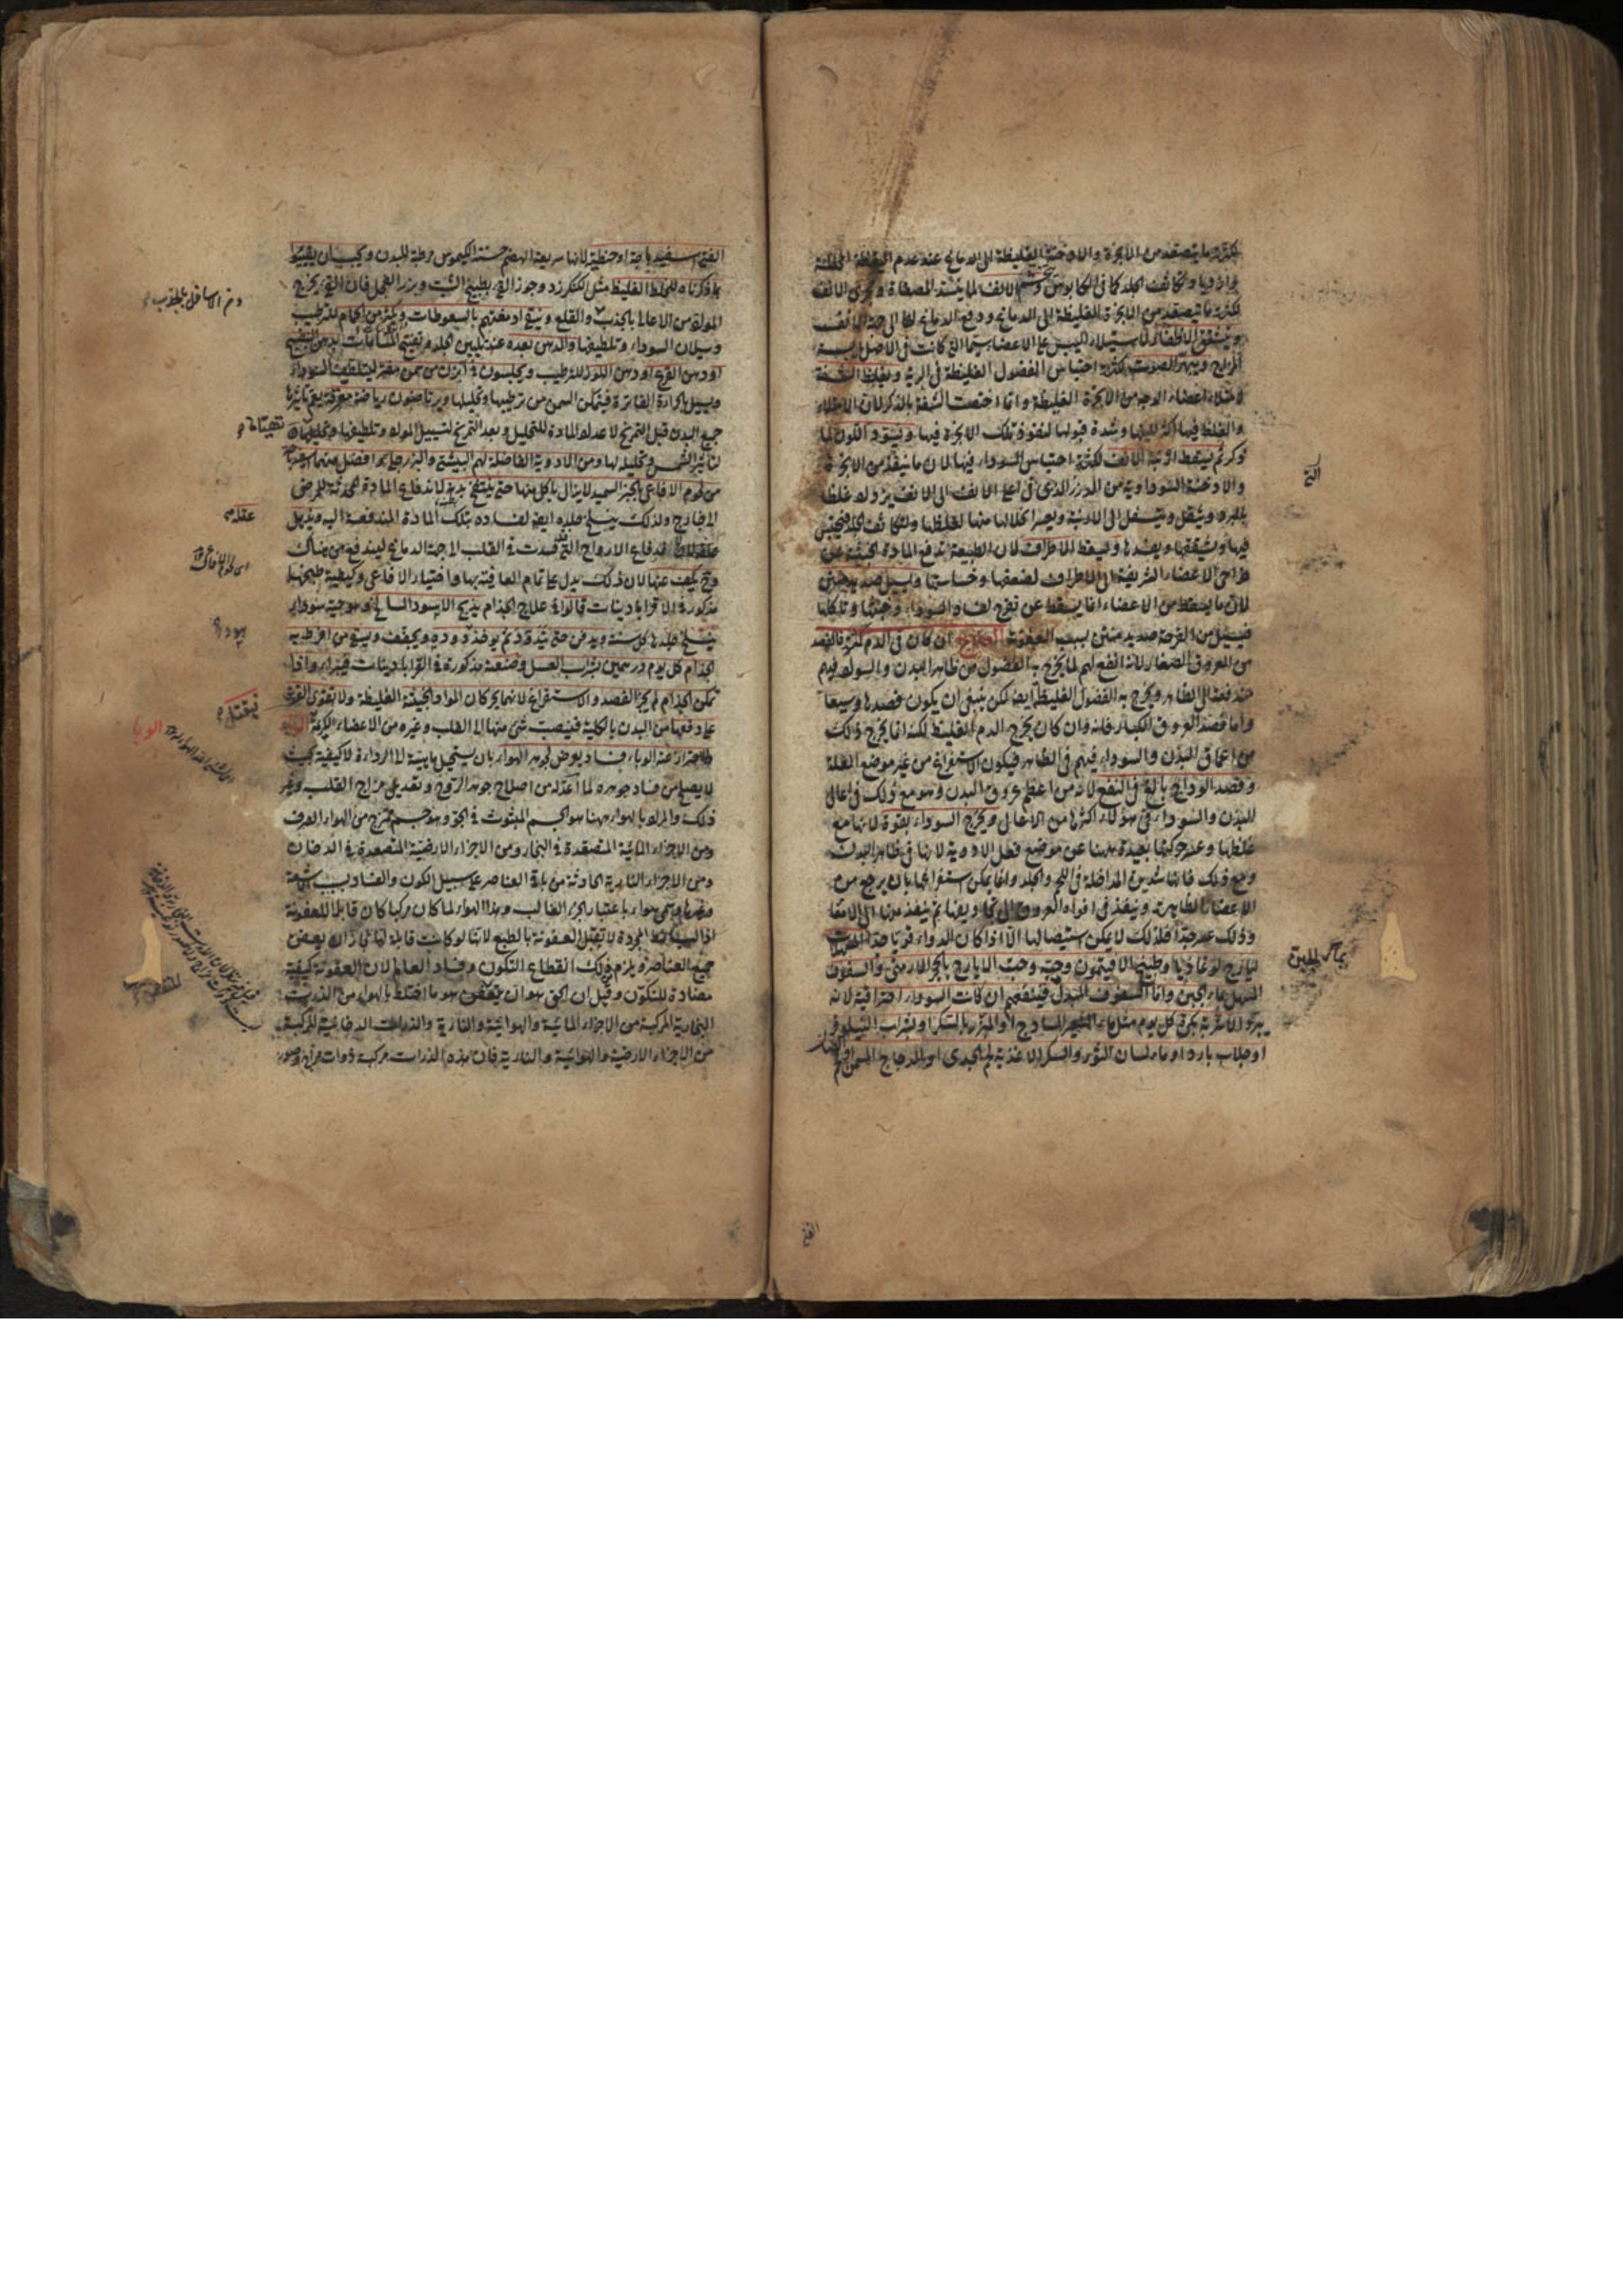 لكثرة ما يتصعد من الابخرة والادخنة الغليظة الى الدماغ عند عدم
الانف لما يشتد المصفاة ومجرى الانف
لكثرة ما يتصعد من الابخرة الغليظة الى الدماغ ودفع الدماغ لها الى جهة الانف
ويتشقق الاظفار لاستيلاء اليبس على الاعضاء سيما التي كانت في الاصل يابسة
المزاج ويبح الصوت لكثرة احتباس الفضول الغليظة في الرية ويغلظ الشفة
لامتلاء اعضاء الوجه من الابخرة الغليظة وانما اختصت الشفة بالذكر لان الامتلاء
والغلظ فيها اكثر وشدة قبولها لنفوذ تلك الابخرة فيها ويسود اللون لما
ذكر ثم يسقط ارنبة الانف لكثرة احتباس السوداء فيها لما ان ما ينفذ من الابخرة
والادخنة السوداوية من الدرز الذي في اعلى الانف الى الانف يزداد غلظا
بالبرد ويثقل ويتسفل الى الارنبة ويعسر انحلالها منها لغلظها
فيها ويشققها ويفسدها ويسقط الاطراف لان الطبيعة تدفع المادة الخبيثة عن
نواحي الاعضاء الشريفة الى الاطراف لضعفها وخساستها ويسيل صديد منتن
لان ما يسقط من الاعضاء انما يسقط عن تقرح لفساد السوداء وخبثها وتاكلها
فيسيل من القرحة صديد منتن بسبب العفونة العلاج ان كان في الدم كثرة فالفصد
من العروق الصغار لانه انفع لهم لما يخرج به الفضول من ظاهر البدن والسوداء فيهم
مندفعة الى الظاهر ويخرج به الفضول الغليظة ايضا لكن ينبغي ان يكون فصدها وسيعا
واما فصد العروق الكبار فانه وان كان يخرج الدم الغليظ لكنه انما يخرج ذلك
من اعماق البدن والسوداء فيهم في الظاهر فيكون الاستفراغ من غير موضع العلة
وفصد الوداج بالغ في النفع لانه من اعظم عروق البدن وهو مع ذلك في اعالي
البدن والسوداء في هؤلاء اكثرها من الاعالى ويخرج السوداء بقوة لانها مع
غلظها وعسر حركتها بعيدة ههنا عن موضع فعل الادوية لانها في ظاهر البدن
ومع ذلك فانها شديدة المداخلة في اللحم والجلد وانما يمكن استفراغها بان يرجع من
الاعضاء الظاهرة وينفذ في افواه العروق الى تجاويفها ثم ينفذ منها الى الامعاء
وذلك عسر جدا فلذلك لا يمكن استيصالها الا اذا كان الدواء قويا جدا
ايارج لوغاذيا وطبيخ الافتيمون وحبه وحب الايارج بالحجر الارمني والسفوف
المسهل بماء الجبن واما السفوف المبدل فينفعهم ان كانت السوداء احتراقية لانه
يبرد الاشربة بكرة كل يوم مثل ماء الشعير الساذج او المبزر بالسكر او بشراب النيلوفر
او جلاب بارد او ماء لسان الثور والسكر الاغذية لحم الجدى او الدجاج المسمن
الفتى
الفتى اسفيدباجة او حنطية لانها سريعة الهضم حسنة الكيموس مرطبة للبدن ويجب ان يقيئوا
بما ذكرناه للخلط الغليظ مثل الكنكرزد وجوز القئ بطبيخ الشبت وبزر الفجل فان القئ يخرج
المواد من الاعالى بالجذب والقلع وينقى ادمغتهم بالسعوطات ويكثر من الحمام للترطيب
وسيلان السوداء وتلطيفها والدهن بعده عند تليين الجلد وتفتيح المسامات بدهن البنفسج
او دهن القرع او دهن اللوز للترطيب ويجلسون في ابزن من سمن مفتر ليتلطف السوداء
ويسيل بالحرارة الفاترة فيتمكن السمن من ترطيبها وتحليلها ويرتاضون رياضة معرقة يعم تاثيرها
جميع البدن قبل التمريخ لاعداد المادة للتحليل وبعد التمريخ لتسييل المواد وتلطيفها
لتاثير الشمس وتحليله لها ومن الادوية الفاضلة لهم البيش والبزرجلي افضل منهما
من لحوم الافاعي بالخبز السميد لا يزال ياكل منها حتى ينتفخ بدنه لاندفاع المادة المحدثة للمرض
الى خارج ولذلك ينسلخ جلده ايضا لفساده بتلك المادة المندفعة اليه ويذهل
عقله لاندفاع الارواح التي فسدت في القلب الى جهة الدماغ ليندفع من هناك
وحينئذ يكف عنها لان ذلك يدل على تمام العافية بها واختيار الافاعي وكيفية طبخها
مذكورة في الاقراباذينات قالوا في علاج الجذام يذبح الاسود السالخ وهو حية سوداء
ينسلخ جلدها كل سنة ويدفن حتى يتدود ثم يوخذ دوده ويجفف ويسقى من افرط به
الجذام كل يوم درهمين بشراب العسل وصنعة مذكورة في القراباذينات فيبرا واذا
تمكن الجذام لم يجز الفصد والاستفراغ لانهما يحركان المواد الخبيثة الغليظة ولا تقوى القوى
على دفعها من البدن بالكلية فينصب شئ منها الى القلب وغيره من الاعضاء الكريمة الوباء
والاحتراز عنه الوباء فساد يعرض لجوهر الهواء بان يستحيل مائيته الى الرداءة لا كيفيته بحيث
لا يصلح من فساد جوهره لما اعد له من اصلاح جوهر الروح وتعديل مزاج القلب وغير
ذلك والمراد بالهواء ههنا هو الجسم المبثوث في الجو وهو جسم ممتزج من الهواء الصرف
ومن الاجزاء المائية المتصعدة في البخار ومن الاجزاء الارضية المتصعدة في الدخان
ومن الاجزاء النارية الحادثة من باقي العناصر على سبيل الكون والفساد بسبب الاشعة
وغيرها ويسمى هواء باعتبار الجزء الغالب وهذا الهواء لما كان مركبا كان قابلا للعفونة
اذ البسائط المجردة لا تقبل العفونة بالطبع لانها لو كانت قابلة لها في زمان يعفن
جميع العناصر ويلزم ذلك انقطاع التكون وفساد العالم لان العفونة كيفية
مضادة للتكون وقيل ان الحق هو ان يتعفن هو ما اختلط بالهواء من الذرات
البخارية المركبة من الاجزاء المائية والهوائية والنارية والذرات الدخانية المركبة
من الاجزاء الارضية والهوائية والنارية فان هذه الذرات مركبة ذوات مزاج وصور
عقله
الوبا